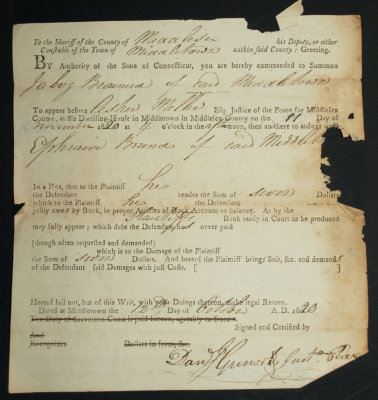 To the Sheriff of the County of Middlesex his Deputy, or either
Constable of the Town of Middletown within said County: Greeting.
BY Authority of the State of Connecticut, you are hereby commanded to Summon
of said Middletown
To appear before Esq. Justice of the Peace for Middlesex
County, at his Dwelling-House in Middletown in Middlesex County on the 11 Day of
November 1820 at o'clock in noon, then an to answer unto
Ephraim of said
In a Plea, that to the Plaintiff his
the Defendant render the Sum of seven Dollars
which to the Plaintiff his
the Defendant Plaintiffs
justly owes by Book, in proper of Book Account to balance. As by the
Book ready in Court to be produced
may fully appear; which debt the Defendant has never paid
(though often requested and demanded)
which is to the Damage of the Plaintiff
the Sum of seven Dollars. And hereof the Plaintiff brings Suit, &c. and demands
of the Defendant said Damages with just Costs. [
Hereof fail not, but of this Writ, with Doings thereon, make legal Return.
Dated at Middletown the Day of October A. D. 1820
The Duty of Seventeen Cents is paid hereon, agreeably to Statute.
Signed and Certified by
And
Recognizes Dollars in form, &c.
Just. Peace